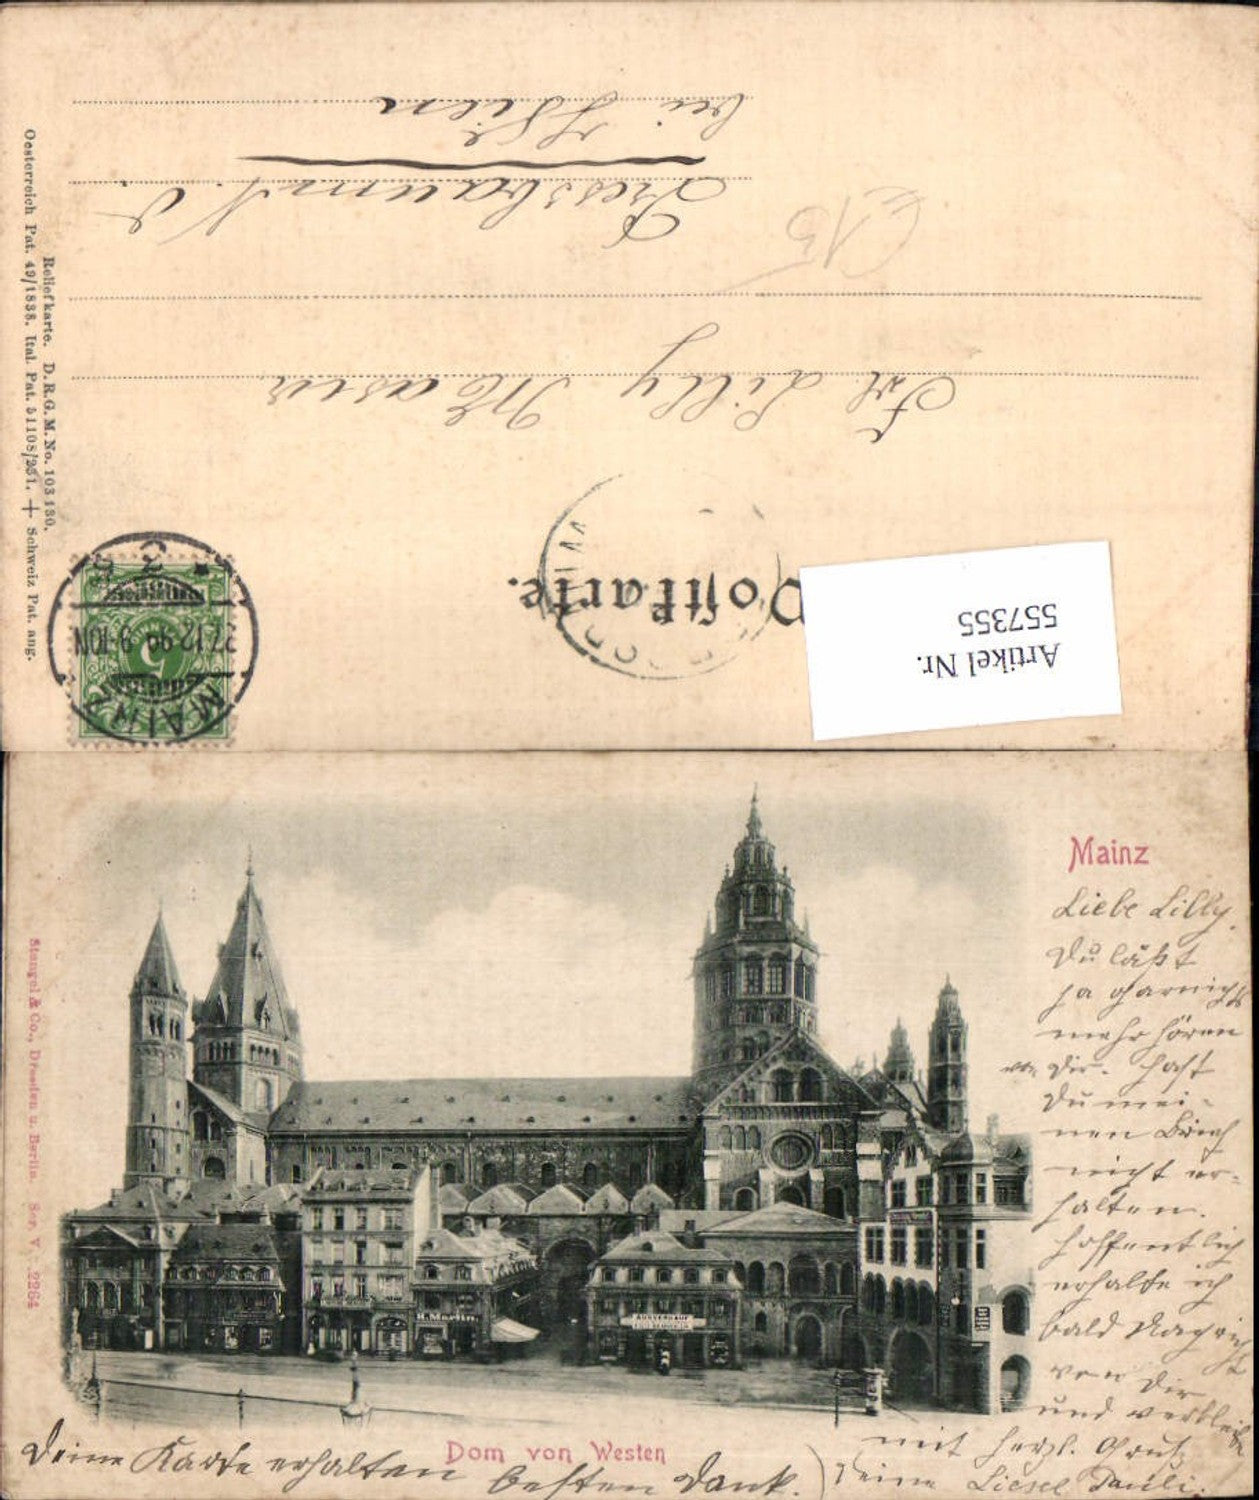 Artikel Nr.
557355
Postkarte.
Frl Lilly Moser
Pressbaum N. Ö.
bei Wien
MAINZ
27.12.99 9-10N.
5
Reliefkarte. D.R.G.M.No. 103180.
Oesterreich Pat. 49/1838. Ital. Pat. 51108/231. + Schweiz Pat. ang.
Mainz
Liebe Lilly.
Du läßt
ja garnichts
mehr hören
von Dir. Hast
Du mei-
nen Brief
nicht er-
halten.
Hoffentlich
erhalte ich
bald Nachricht
von Dir
und verbleibe
mit herzl. Gruß
Deine Liesel Pauli.
Deine Karte erhalten besten Dank.)
Dom von Westen
H. Martin
AUSVERKAUF
Stengel & Co., Dresden u. Berlin. Ser. V. 2264